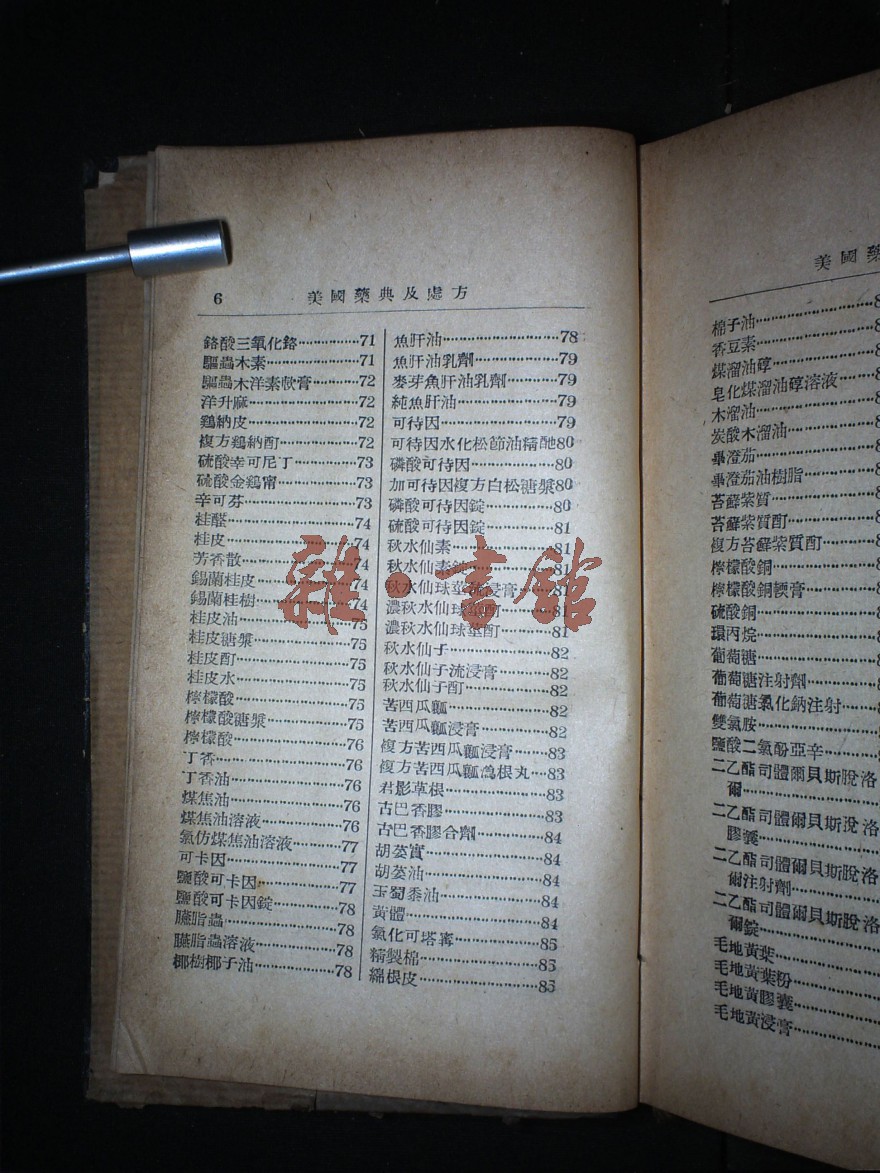 6 美國藥典及處方
鉻酸三氧化鉻 71
驅蟲木素 71
驅蟲木洋素軟膏 72
洋升麻 72
鷄納皮 72
複方鷄納酊 72
硫酸幸可尼丁 73
硫酸金鷄甯 73
辛可芬 73
桂醛 74
桂皮 74
芳香散 74
錫蘭桂皮 74
錫蘭桂樹 74
桂皮油 75
桂皮糖漿 75
桂皮酊 75
桂皮水 75
檸檬酸 75
檸檬酸糖漿 75
檸檬酸 76
丁香 76
丁香油 76
煤焦油 76
煤焦油溶液 76
氯仿煤焦油溶液 77
可卡因 77
鹽酸可卡因 77
鹽酸可卡因錠 78
臙脂蟲 78
臙脂蟲溶液 78
椰樹椰子油 78
魚肝油 78
魚肝油乳劑 79
麥芽魚肝油乳劑 79
純魚肝油 79
可待因 79
可待因水化松節油精酏 80
磷酸可待因 80
加可待因複方白松糖漿 80
磷酸可待因錠 80
硫酸可待因錠 81
秋水仙素 81
秋水仙素錠 81
秋水仙球莖流浸膏 81
濃秋水仙球莖酊 81
濃秋水仙球莖酊 81
秋水仙子 82
秋水仙子流浸膏 82
秋水仙子酊 82
苦西瓜瓤 82
苦西瓜瓤浸膏 82
複方苦西瓜瓤浸膏 83
複方苦西瓜瓤瀉根丸 83
君影草根 83
古巴香膠 83
古巴香膠合劑 84
胡荽實 84
胡荽油 84
玉蜀黍油 84
黃體 84
氯化可塔寗 85
精製棉 85
綿根皮 85
美國藥
棉子油
香豆素
煤溜油醇
皂化煤溜油醇溶液
木溜油
炭酸木溜油
畢澄茄
畢澄茄油樹脂
苔蘚紫質
苔蘚紫質酊
複方苔蘚紫質酊
檸檬酸銅
檸檬酸銅輭膏
硫酸銅
環丙烷
葡萄糖
葡萄糖注射劑
葡萄糖氯化鈉注射
雙氯胺
鹽酸二氯酚亞辛
二乙酯司體爾貝斯脫洛
爾
二乙酯司體爾貝斯脫洛
膠囊
二乙酯司體爾貝斯脫洛
爾注射劑
二乙酯司體爾貝斯脫洛
爾錠
毛地黃葉
毛地黃葉粉
毛地黃膠囊
毛地黃浸膏
雜·書館